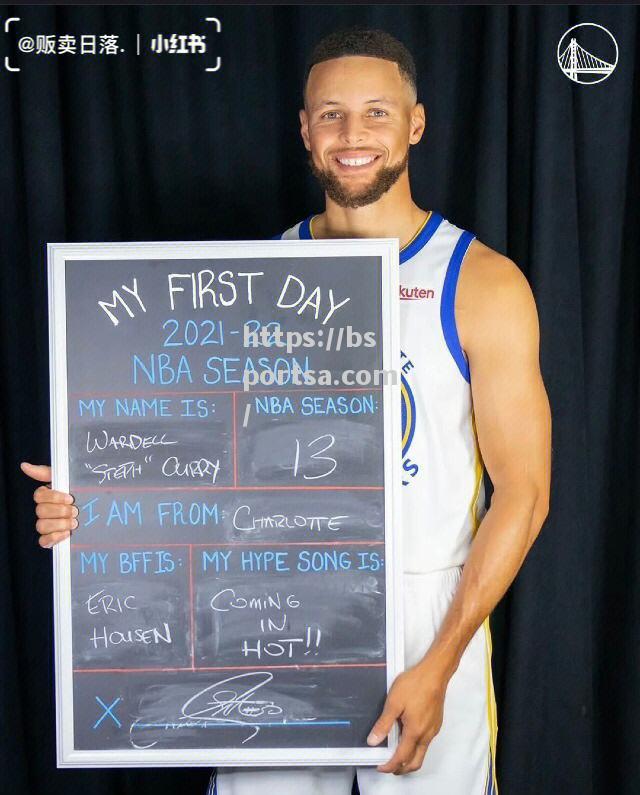 @贩卖日落. | 小红书
kuten
MY FIRST DAY
2021-22
NBA SEASON
https://bs
portsa.com
/
MY NAME IS:
WARDELL
"STEPH" CURRY
NBA SEASON:
13
I AM FROM: CHARLOTTE
MY BFF IS:
ERIC
HOUSEN
MY HYPE SONG IS:
COMING
IN
HOT!!
X